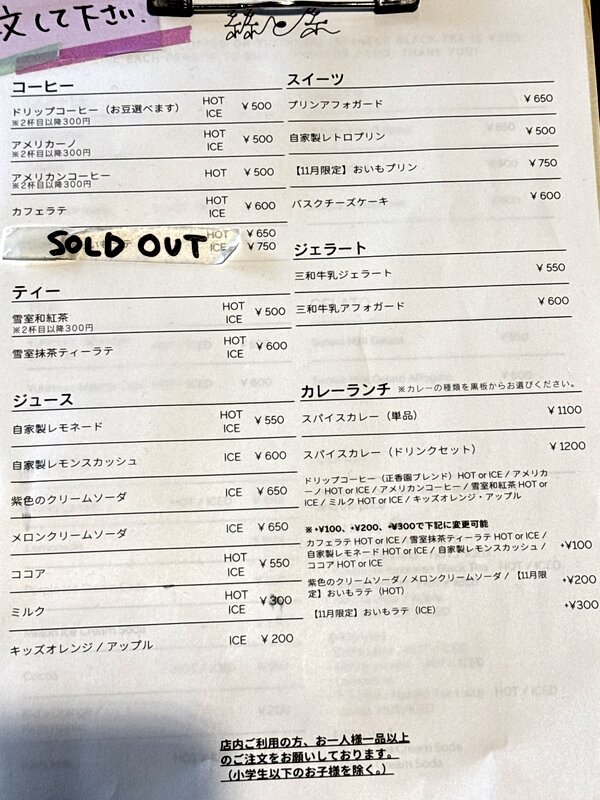 文して下さい.
コーヒー
ドリップコーヒー（お豆選べます） HOT ICE ￥500
※2杯目以降300円
アメリカーノ HOT ICE ￥500
※2杯目以降300円
アメリカンコーヒー HOT ￥500
※2杯目以降300円
カフェラテ HOT ICE ￥600
SOLD OUT HOT ￥650
ICE ￥750
ティー
雪室和紅茶 HOT ICE ￥500
※2杯目以降300円
雪室抹茶ティーラテ HOT ICE ￥600
ジュース
自家製レモネード HOT ICE ￥550
自家製レモンスカッシュ ICE ￥600
紫色のクリームソーダ ICE ￥650
メロンクリームソーダ ICE ￥650
ココア HOT ICE ￥550
ミルク HOT ICE ￥300
キッズオレンジ / アップル ICE ￥200
スイーツ
プリンアフォガード ￥650
自家製レトロプリン ￥500
【11月限定】おいもプリン ￥750
バスクチーズケーキ ￥600
ジェラート
三和牛乳ジェラート ￥550
三和牛乳アフォガード ￥600
カレーランチ ※カレーの種類を黒板からお選びください。
スパイスカレー（単品） ￥1100
スパイスカレー（ドリンクセット） ￥1200
ドリップコーヒー（正香園ブレンド）HOT or ICE / アメリカ
ーノ HOT or ICE / アメリカンコーヒー / 雪室和紅茶 HOT or
ICE / ミルク HOT or ICE / キッズオレンジ・アップル
※ +¥100、+¥200、+¥300で下記に変更可能
カフェラテ HOT or ICE / 雪室抹茶ティーラテ HOT or ICE /
自家製レモネード HOT or ICE / 自家製レモンスカッシュ / +¥100
ココア HOT or ICE
紫色のクリームソーダ / メロンクリームソーダ / 【11月限 +¥200
定】おいもラテ（HOT）
【11月限定】おいもラテ（ICE） +¥300
店内ご利用の方、お一人様一品以上
のご注文をお願いしております。
（小学生以下のお子様を除く。）